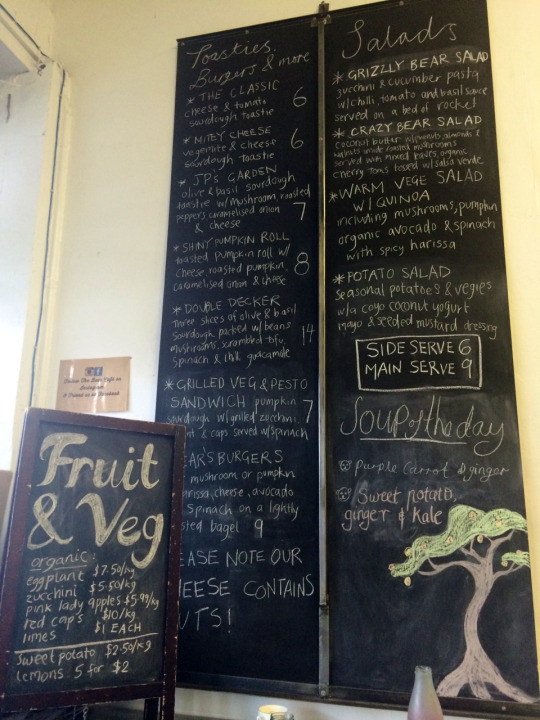 Toasties,
Burgers & more
* THE CLASSIC
cheese & tomato
sourdough toastie 6
* MITEY CHEESE
vegemite & cheese
sourdough toastie 6
* JP's GARDEN
olive & basil sourdough
toastie w/mushroom, roasted
peppers, caramelised onion
& cheese 7
* SHINY PUMPKIN ROLL
toasted pumpkin roll w/
cheese, roasted pumpkin,
caramelised onion & cheese 8
* DOUBLE DECKER
Three slices of olive & basil
Sourdough packed w/beans
mushrooms, scrambled tofu,
Spinach & chilli guacamole 14
* GRILLED VEG & PESTO
SANDWICH pumpkin
sourdough w/grilled zucchini,
& caps served w/spinach 7
BURGERS
mushroom or pumpkin
cheese, avocado
spinach on a lightly
bagel 9
NOTE OUR
CONTAINS
Salads
* GRIZZLY BEAR SALAD
zucchini & cucumber pasta
w/chilli, tomato and basil sauce
served on a bed of rocket
* CRAZY BEAR SALAD
coconut butter almonds &
walnuts roasted mushrooms
served with mixed leaves, organic
cherry toms tossed w/salsa verde
* WARM VEGE SALAD
W/ QUINOA
including mushrooms, pumpkin
organic avocado & spinach
with spicy harissa
* POTATO SALAD
seasonal potatoes & vegies
w/a coyo coconut yogurt
mayo & seeded mustard dressing
SIDE SERVE 6
MAIN SERVE 9
Soup of the day
purple carrot & ginger
Sweet potato,
ginger & Kale
Fruit
& Veg
organic:
eggplant $7.50/kg
zucchini $5.50/kg
pink lady apples $5.99/kg
red caps $10/kg
limes $1 EACH
sweet potato $2.50/kg
lemons 5 for $2